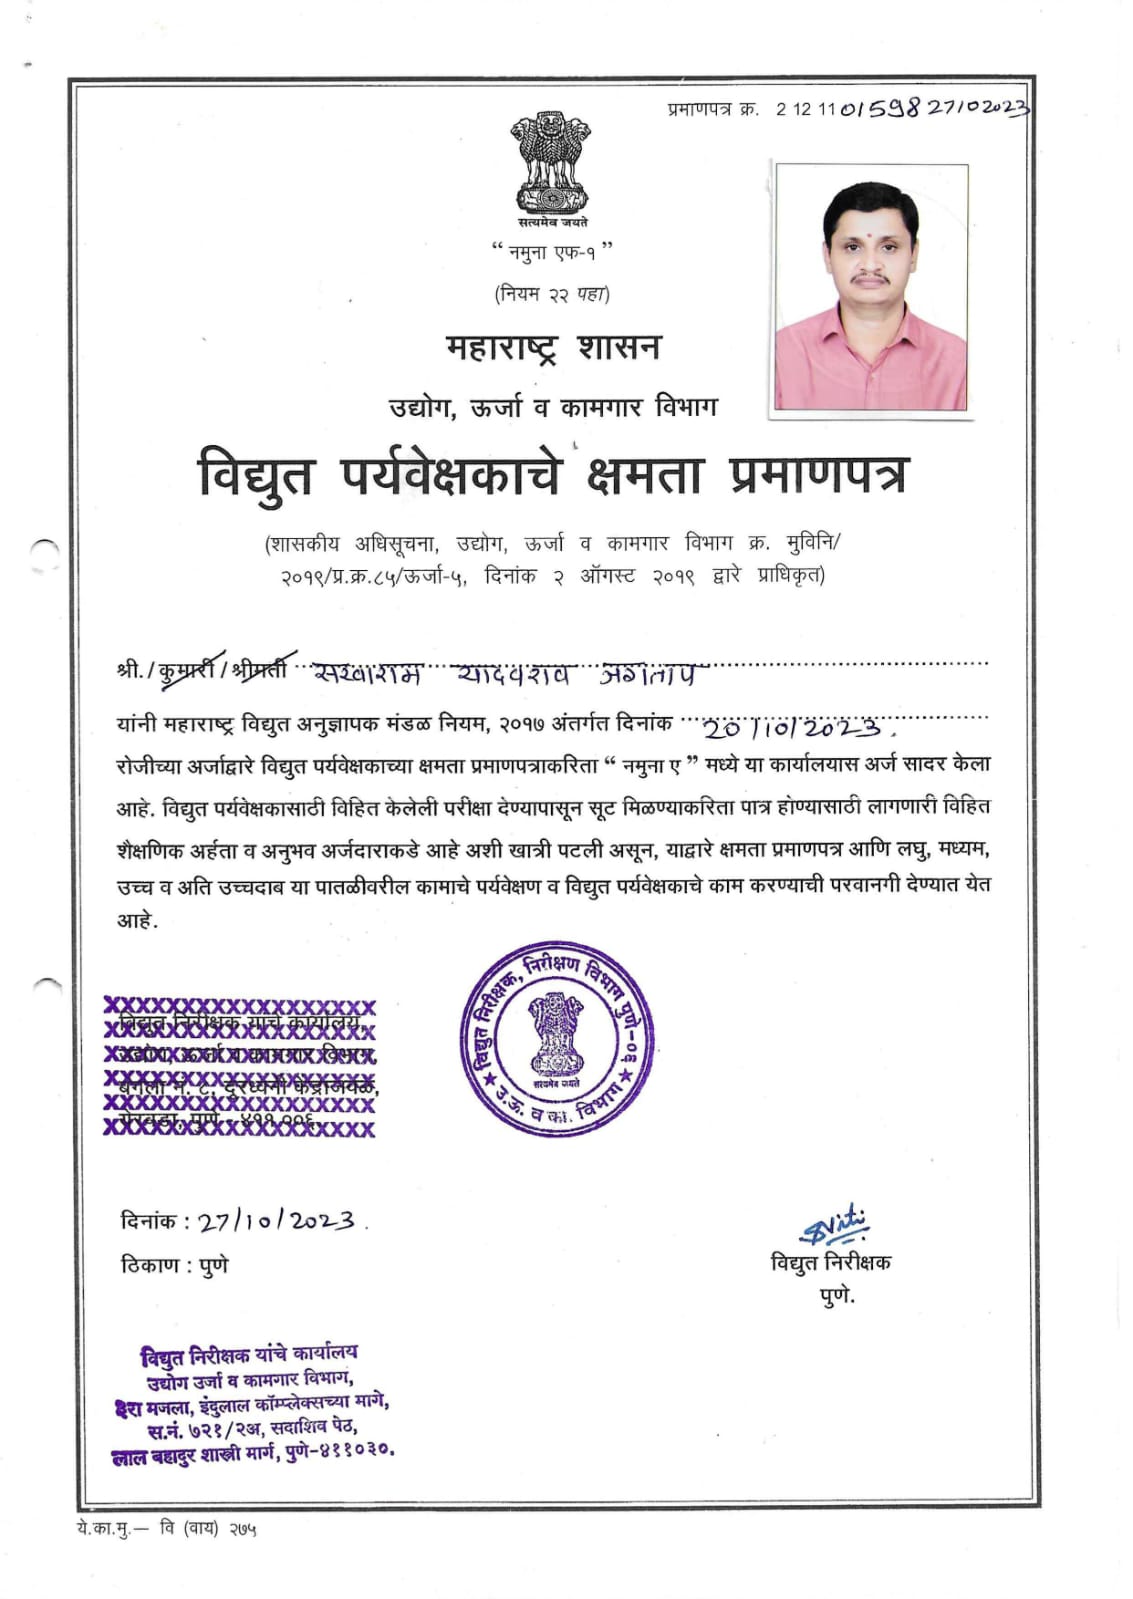 प्रमाणपत्र क्र. 2 12 11 01598 27102023
सत्यमेव जयते
“ नमुना एफ-१ ”
(नियम २२ पहा)
महाराष्ट्र शासन
उद्योग, ऊर्जा व कामगार विभाग
विद्युत पर्यवेक्षकाचे क्षमता प्रमाणपत्र
(शासकीय अधिसूचना, उद्योग, ऊर्जा व कामगार विभाग क्र. मुविनि/
२०१९/प्र.क्र.८५/ऊर्जा-५, दिनांक २ ऑगस्ट २०१९ द्वारे प्राधिकृत)
श्री./कुमारी/श्रीमती सखाराम यादवराव जगताप
यांनी महाराष्ट्र विद्युत अनुज्ञापक मंडळ नियम, २०१७ अंतर्गत दिनांक 20/10/2023.
रोजीच्या अर्जाद्वारे विद्युत पर्यवेक्षकाच्या क्षमता प्रमाणपत्राकरिता “ नमुना ए ” मध्ये या कार्यालयास अर्ज सादर केला
आहे. विद्युत पर्यवेक्षकासाठी विहित केलेली परीक्षा देण्यापासून सूट मिळण्याकरिता पात्र होण्यासाठी लागणारी विहित
शैक्षणिक अर्हता व अनुभव अर्जदाराकडे आहे अशी खात्री पटली असून, याद्वारे क्षमता प्रमाणपत्र आणि लघु, मध्यम,
उच्च व अति उच्चदाब या पातळीवरील कामाचे पर्यवेक्षण व विद्युत पर्यवेक्षकाचे काम करण्याची परवानगी देण्यात येत
आहे.
विद्युत निरीक्षक यांचे कार्यालय,
उद्योग, ऊर्जा व कामगार विभाग,
बंगला नं. ८, दूरध्वनी केंद्राजवळ,
येरवडा, पुणे - ४११ ००६.
विद्युत निरीक्षक, निरीक्षण विभाग पुणे-०६
सत्यमेव जयते
उ.ऊ. व का. विभाग
दिनांक : 27/10/2023.
ठिकाण : पुणे
विद्युत निरीक्षक
पुणे.
विद्युत निरीक्षक यांचे कार्यालय
उद्योग उर्जा व कामगार विभाग,
३रा मजला, इंदुलाल कॉम्प्लेक्सच्या मागे,
स.नं. ७२१/२अ, सदाशिव पेठ,
लाल बहादुर शास्त्री मार्ग, पुणे-४११०३०.
ये.का.मु.— वि (वाय) २७५